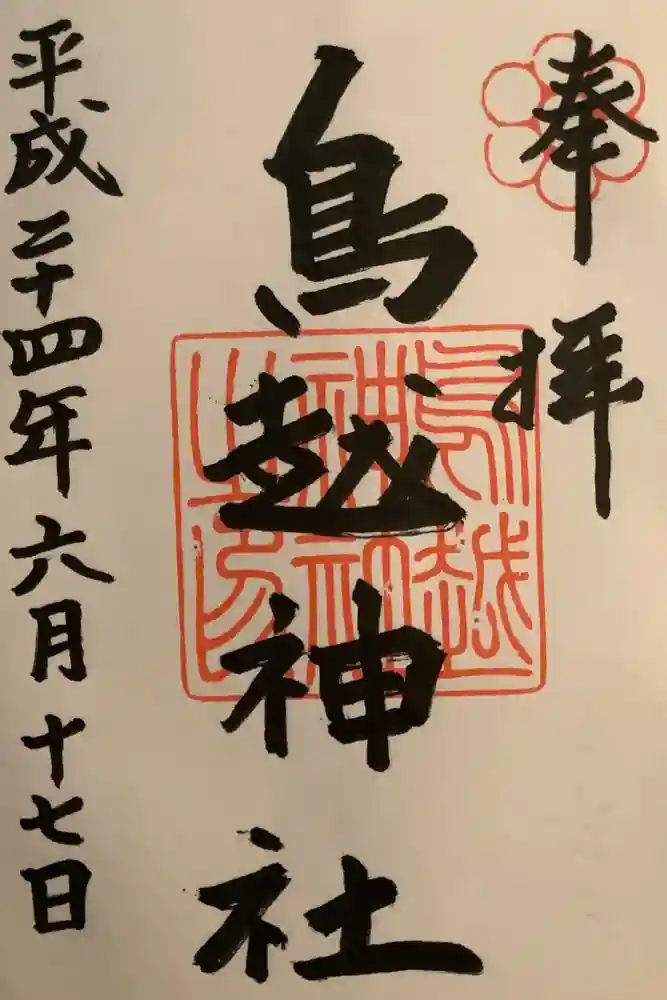 奉拝
鳥越神社
平成二十四年六月十七日
鳥越
神社
之印